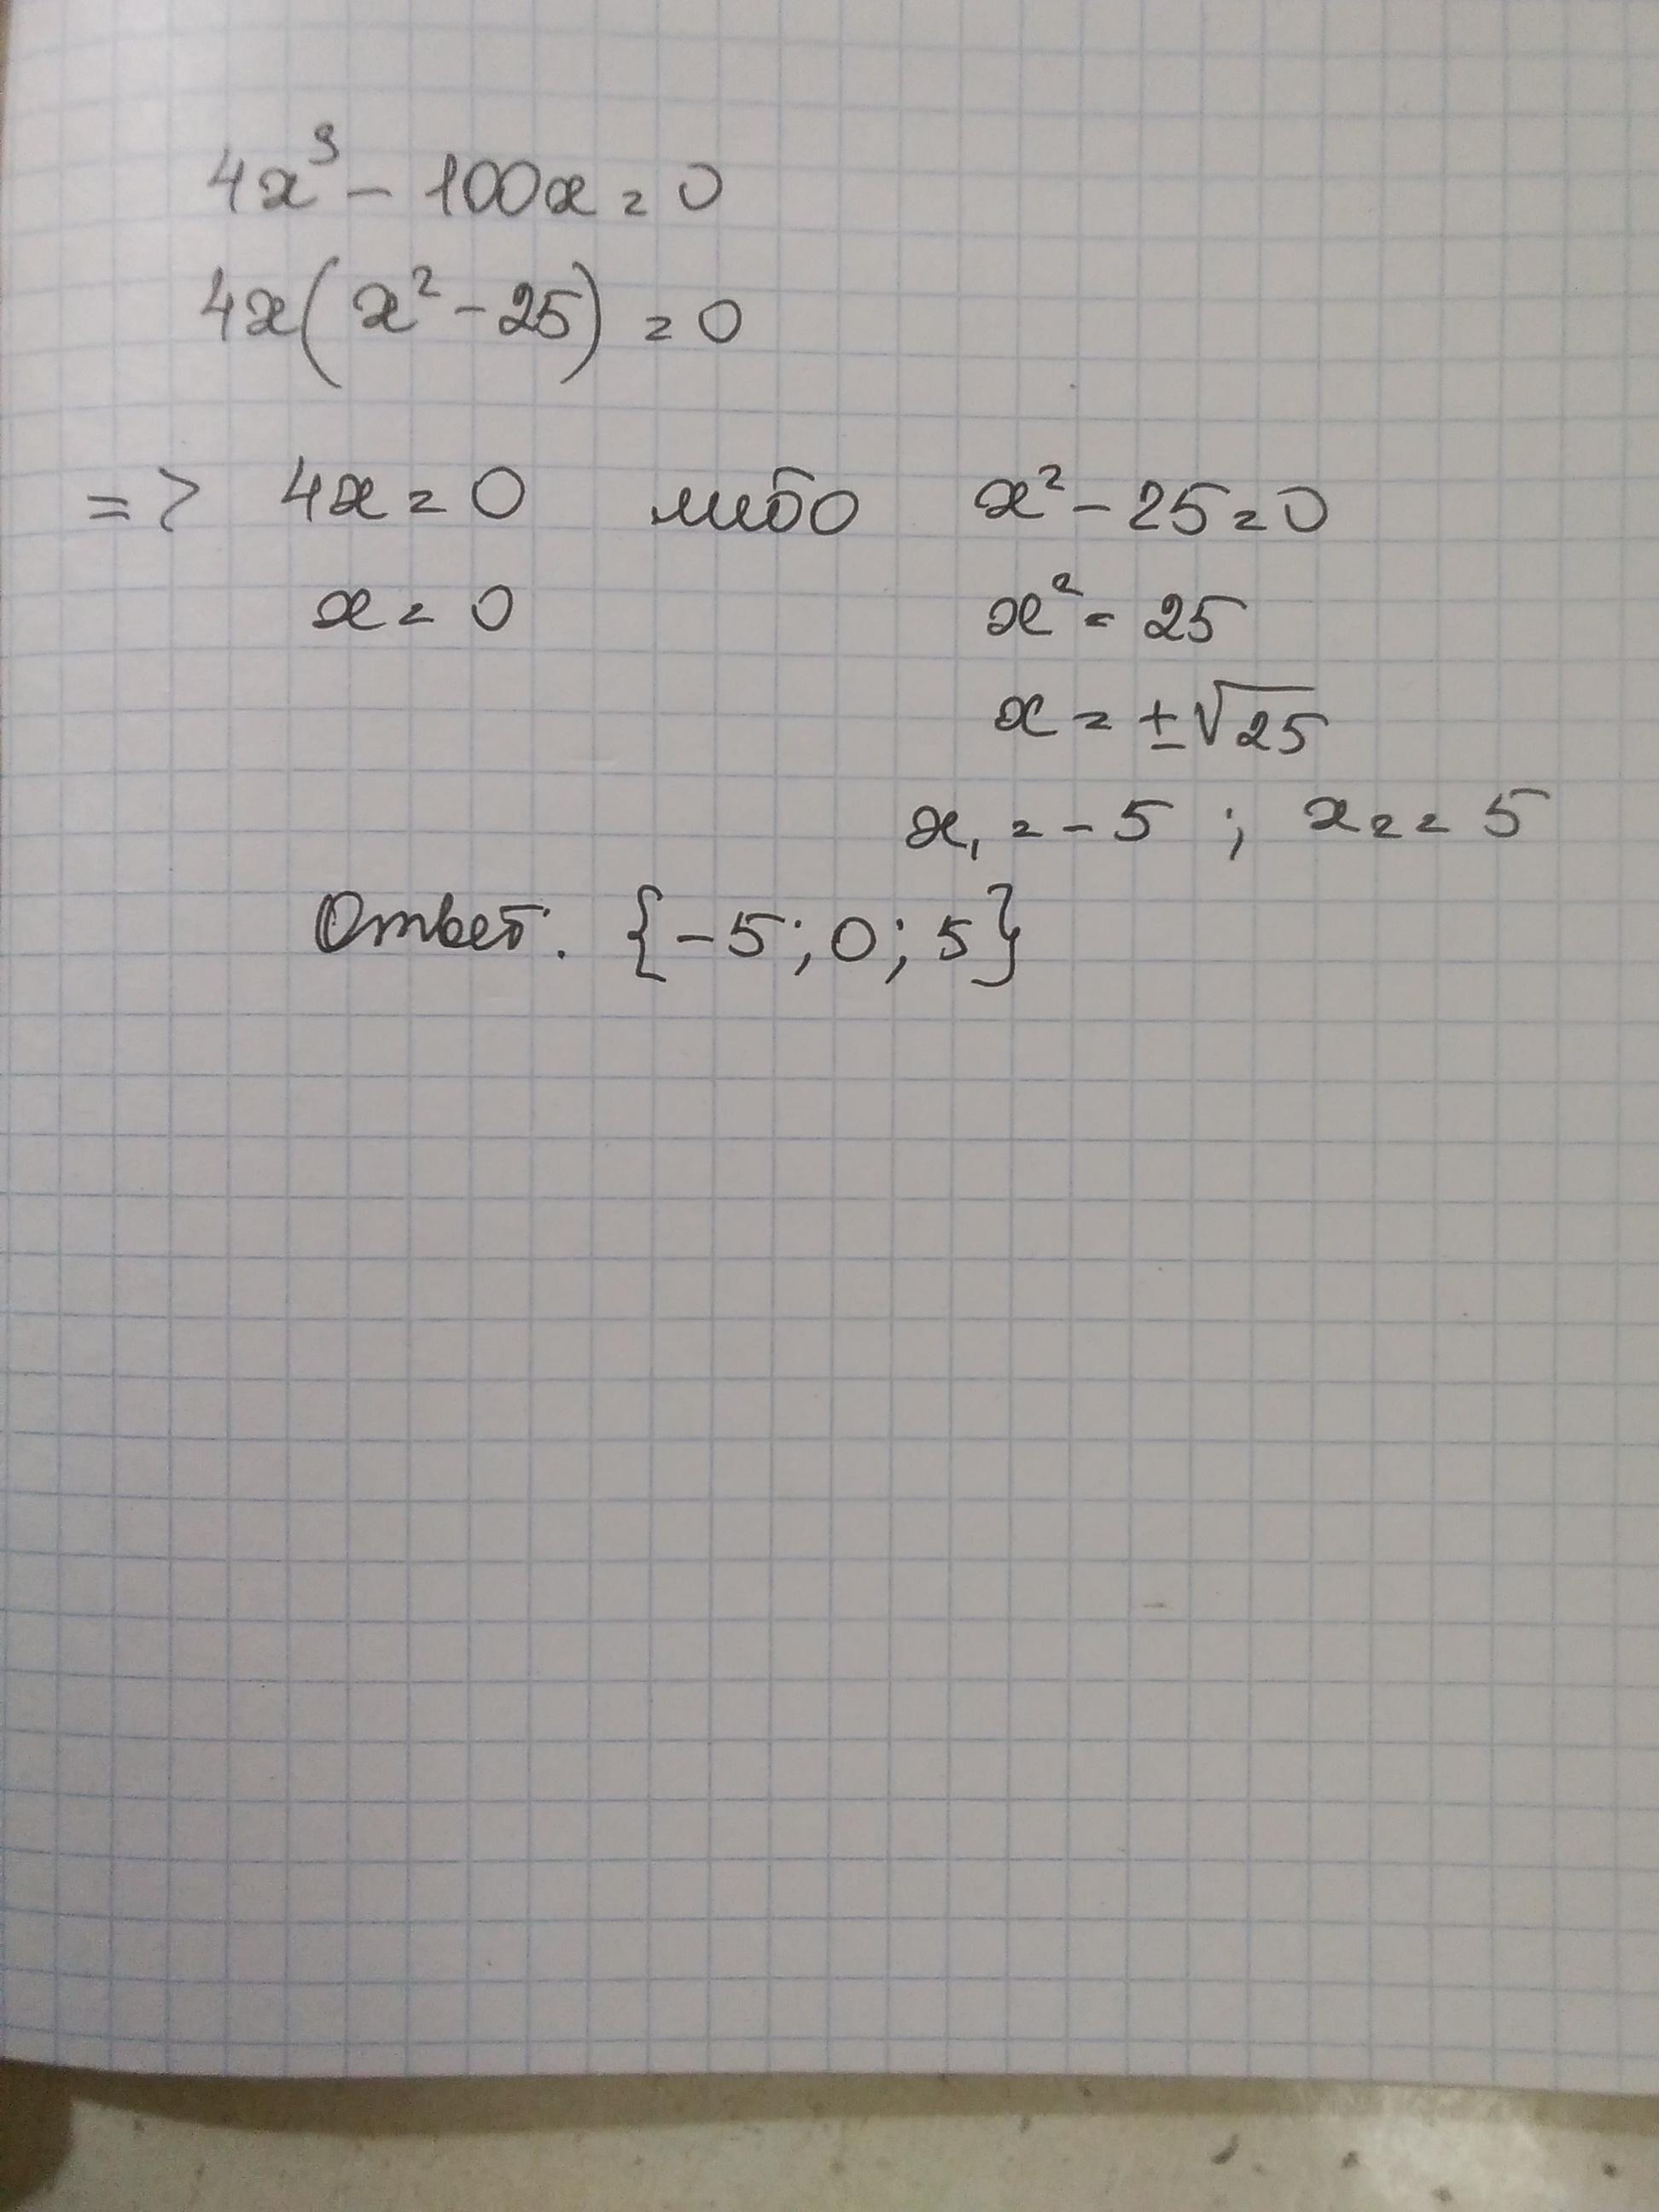 4x³ - 100x = 0
4x(x² - 25) = 0
=> 4x = 0 либо x² - 25 = 0
x = 0 x² = 25
x = ±√25
x₁ = -5 ; x₂ = 5
Ответ: {-5; 0; 5}